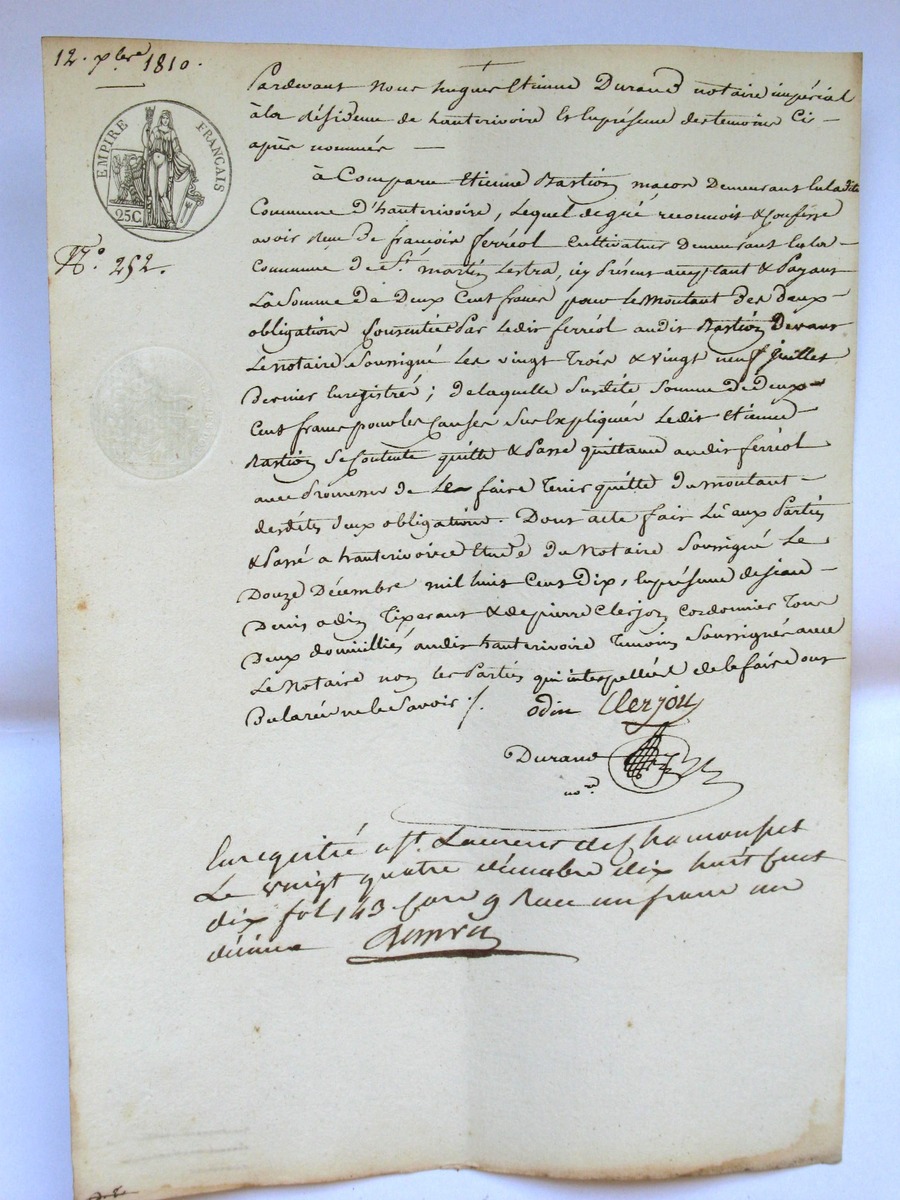 12. xbre 1810.
EMPIRE FRANÇAIS
25C
N.º 252.
Pardevant Nous hugues Etienne Durand notaire impérial
à la Résidence de hauterivoire & en présence des temoins Ci-
après nommés —
à Comparu Etienne Bastion maçon Demeurant en la dite
Commune D'hauterivoire, Lequel de gré reconnoit & Confesse
avoir Reçu De françois ferréol Cultivateur Demeurant en la
Commune de St. martin Lestra, icy Présent acceptant & Payant
La Somme de Deux Cent francs pour le Montant des deux
obligations Consenties Par Ledit ferréol audit Bastion Devant
Le Notaire Soussigné Les vingt trois & vingt neuf Juillet
Dernier Enregistrés ; de laquelle Susdite Somme de Deux
Cent francs pour les Causes Sus Expliquées Ledit Etienne
Bastion Se Contente quitte & Passe quittance audit ferréol
avec Promesse de Le faire tenir quitte du montant
desdites deux obligations. Dont acte fait Lu aux Parties
& Passé a hauterivoire Etude du Notaire Soussigné Le
Douze Décembre mil huit Cent Dix, En présence de jean
Denis odin Tixerant & de pierre Clerjon Cordonnier Tous
Deux domiciliés audit hauterivoire Temoins Soussignés avec
Le Notaire non les Parties qui interpellées de le faire ont
Déclaré ne le Savoir ./.
odin Clerjon
Durand
nore
Enregistré a St. Laurens de Chamousset
Le vingt quatre décembre dix huit Cent
dix fol 143 Case 9 Reçu un franc un
décime